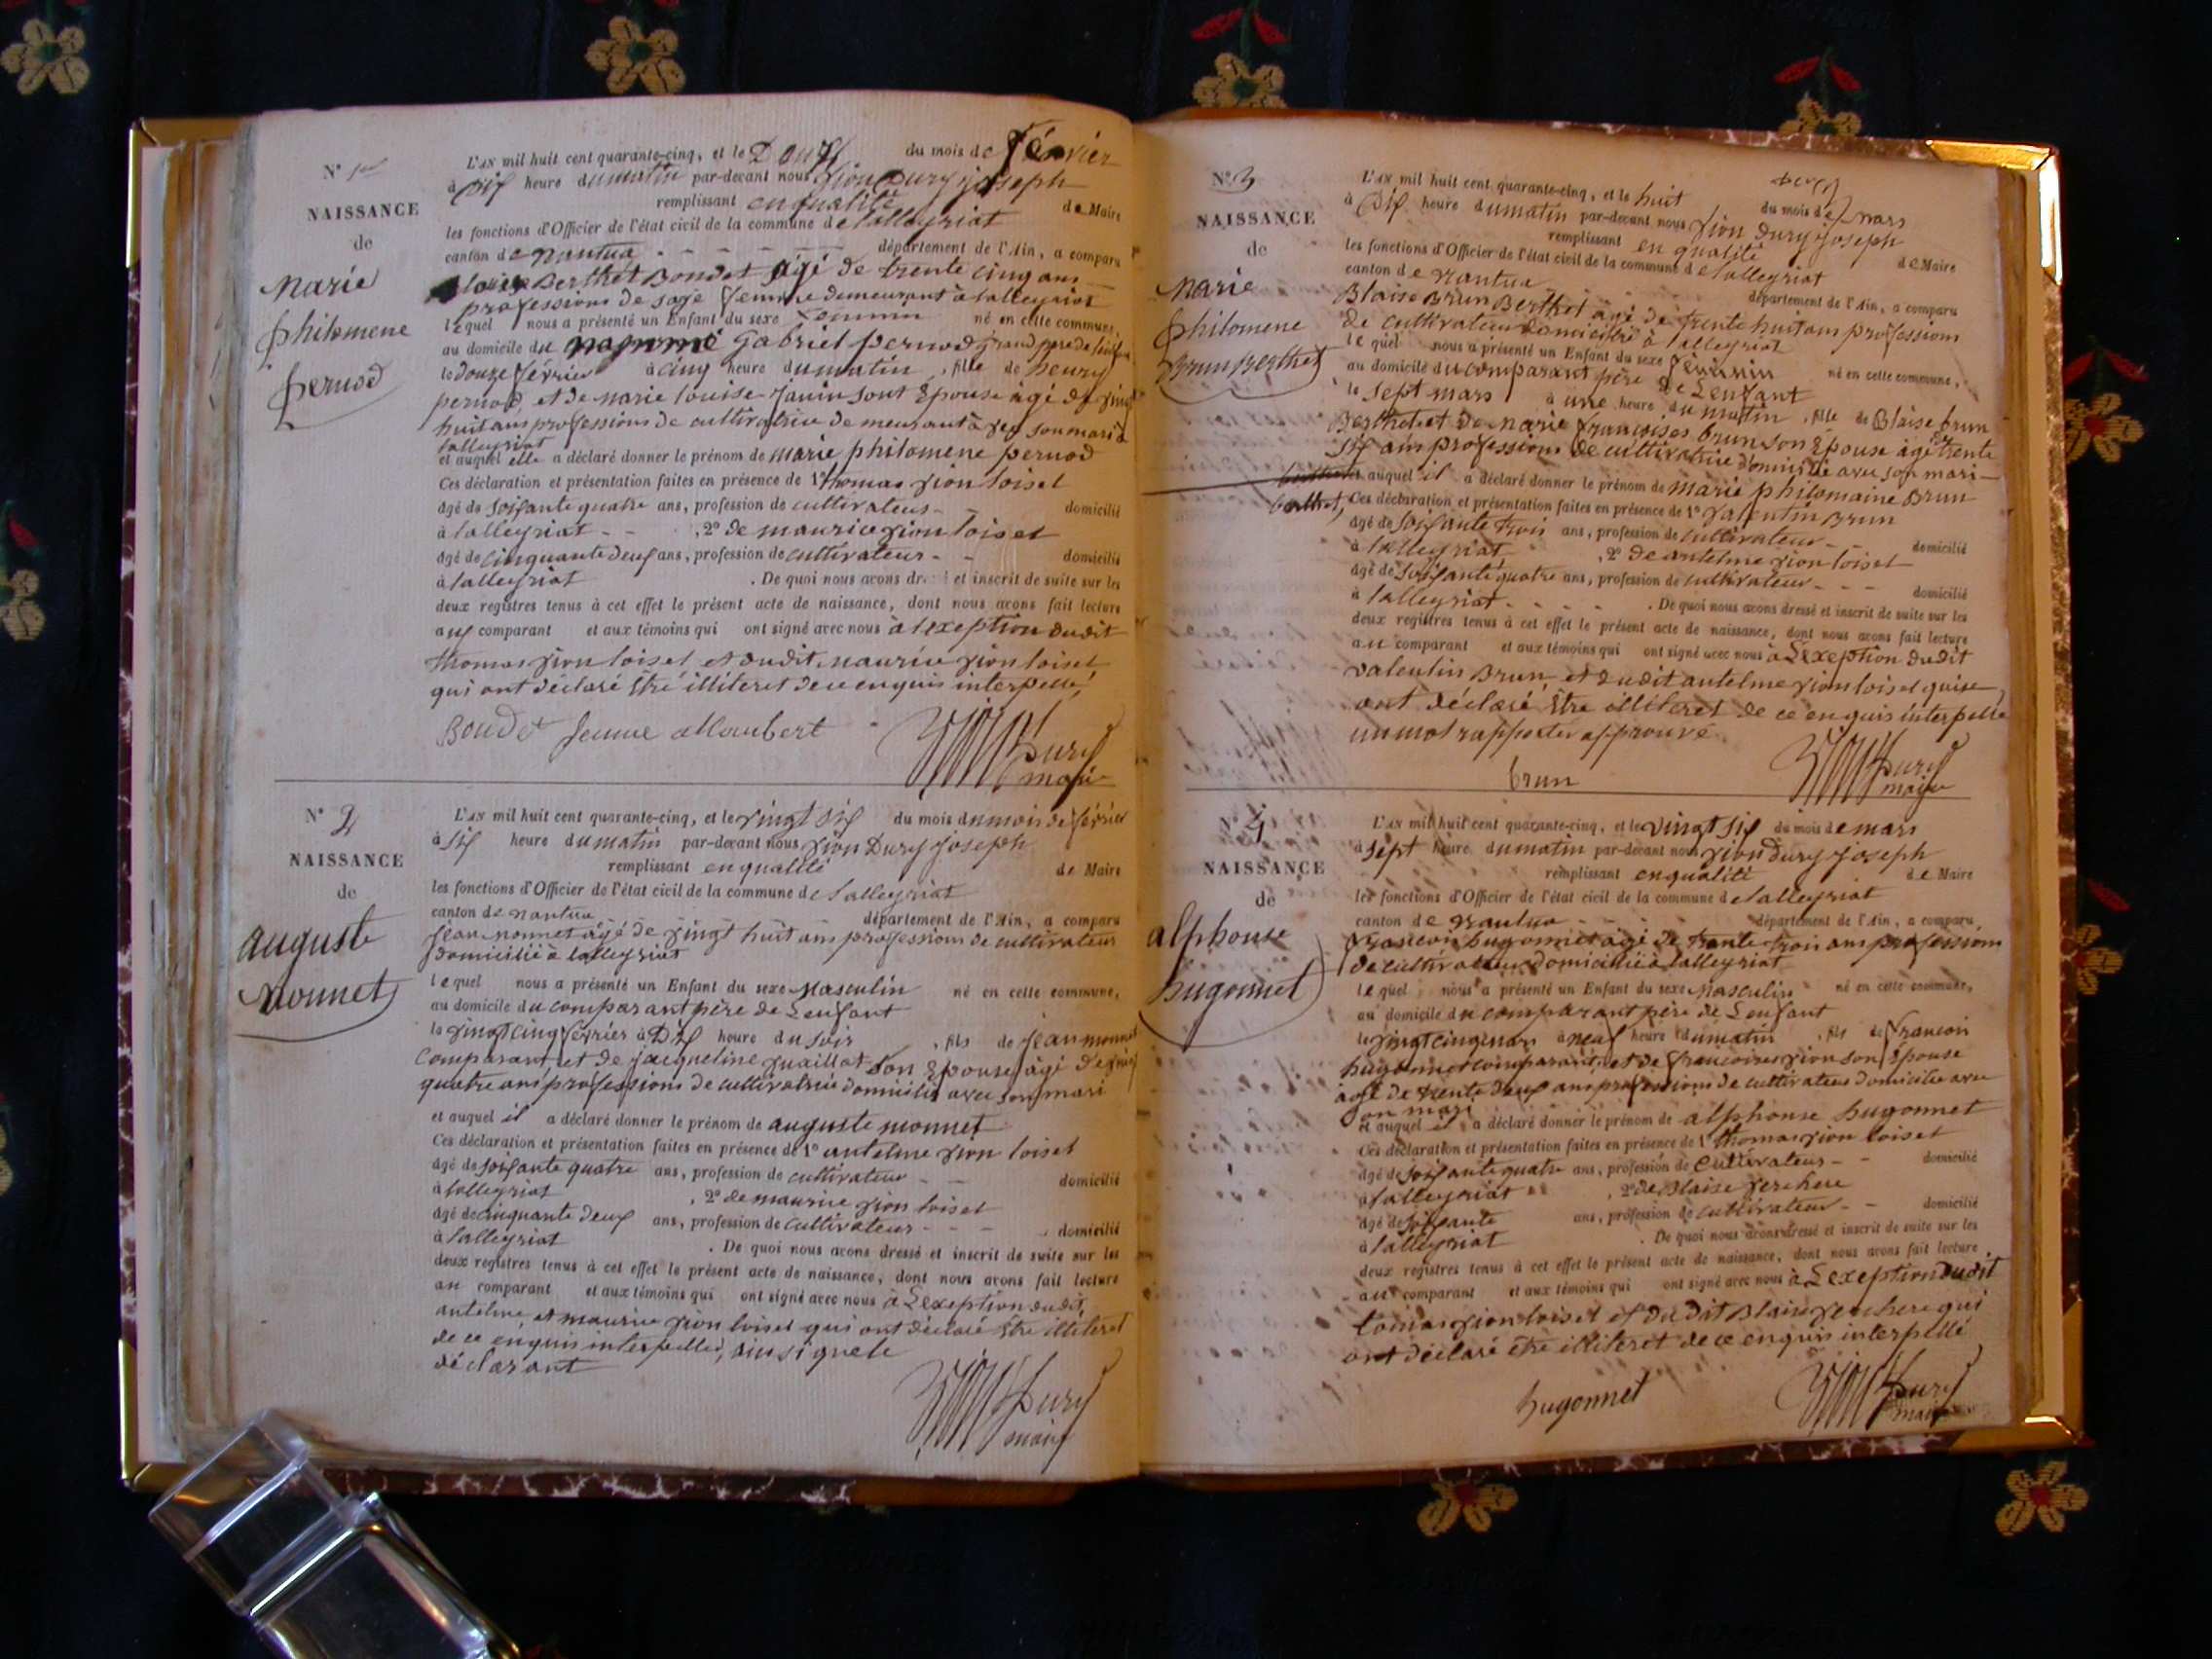 N° 1er
NAISSANCE
de
Marie
philomene
pernod
L'AN mil huit cent quarante-cinq, et le Douze du mois de février
à Dix heure du matin par-devant nous Jion Dury joseph
remplissant en qualité de Maire
les fonctions d'Officier de l'état civil de la commune de lalleyriat
canton de Nantua département de l'Ain, a comparu
Berthet Bondet âgé de trente cinq ans
professions de sage femme demeurant à lalleyriat
lequel nous a présenté un Enfant du sexe né en cette commune,
au domicile du gabriel pernod grand pere de
le Douze février à cinq heure du matin, fille de henry
pernod, et de marie louise janin sont Epouse âgé de
huit ans professions de cultivatrice demeurant avec son mari à
lalleyriat
et auquel elle a déclaré donner le prénom de marie philomene pernod
Ces déclaration et présentation faites en présence de 1° thomas jion loiset
âgé de soixante quatre ans, profession de cultivateur domicilié
à lalleyriat , 2° de maurice jion loiset
âgé de cinquante deux ans, profession de cultivateur domicilié
à lalleyriat . De quoi nous avons dr et inscrit de suite sur les
deux registres tenus à cet effet le présent acte de naissance, dont nous avons fait lecture
aux comparant et aux témoins qui ont signé avec nous à lexeption dudit
thomas jion loiset et dudit maurice jion loiset
qui ont déclaré être illiteret de ce enquis interpellé,
Bondet femme Moubert
Dury
maire
N° 2
NAISSANCE
de
auguste
monnet
L'AN mil huit cent quarante-cinq, et le vingt six du mois dumois de février
à six heure du matin par-devant nous jion Dury joseph
remplissant en qualité de Maire
les fonctions d'Officier de l'état civil de la commune de lalleyriat
canton de nantua département de l'Ain, a comparu
jean monnet âgé de vingt huit ans professions de cultivateur
Domicilié à lalleyriat
lequel nous a présenté un Enfant du sexe Masculin né en cette commune,
au domicile du comparant père de Lenfant
le vingt cinq février à Dix heure du soir , fils de jean monnet
comparant, et de jacqueline juaillat son Epouse âgé de
quatre ans professions de cultivatrice domicilié avec son mari
et auquel il a déclaré donner le prénom de auguste monnet
Ces déclaration et présentation faites en présence de 1° antelme jion loiset
âgé de soixante quatre ans, profession de cultivateur domicilié
à lalleyriat , 2° de maurice jion loiset
âgé de cinquante deux ans, profession de cultivateur domicilié
à lalleyriat . De quoi nous avons dressé et inscrit de suite sur les
deux registres tenus à cet effet le présent acte de naissance, dont nous avons fait lecture
au comparant et aux témoins qui ont signé avec nous à Lexeption dudit,
antelme, et maurice jion loiset qui ont déclaré être illiteret
de ce enquis interpellée, ainsi que le
déclarant
Dury
maire
N° 3
NAISSANCE
de
Marie
philomene
Brun Berthet
L'AN mil huit cent quarante-cinq, et le huit du mois de mars
à Dix heure du matin par-devant nous jion Dury joseph
remplissant en qualité de Maire
les fonctions d'Officier de l'état civil de la commune de lalleyriat
canton de Nantua département de l'Ain, a comparu
Blaise Brun Berthet âgé de trente huit ans professions
de cultivateur domicilié à lalleyriat
lequel nous a présenté un Enfant du sexe féminin né en cette commune,
au domicile du comparant père de Lenfant
le sept mars à une heure du matin , fille de Blaise brun
Berthet et de Marie françoises brun son Epouse âgé trente
six ans professions de cultivatrice domicilié avec son mari
auquel il a déclaré donner le prénom de marie philomaine Brun
berthet, Ces déclaration et présentation faites en présence de 1° valentin Brun
âgé de soixante trois ans, profession de cultivateur domicilié
à lalleyriat , 2° de antelme jion loiset
âgé de soixante quatre ans, profession de cultivateur domicilié
à lalleyriat . De quoi nous avons dressé et inscrit de suite sur les
deux registres tenus à cet effet le présent acte de naissance, dont nous avons fait lecture
au comparant et aux témoins qui ont signé avec nous à Lexeption dudit
valentin Brun, et dudit antelme jion loiset
ont déclaré être illiteret de ce enquis interpelle
un mot rapporter approuvé
brun
Dury
maire
N° 4
NAISSANCE
de
alphonse
hugonnet
L'AN mil huit cent quarante-cinq, et le vingt six du mois de mars
à sept heure du matin par-devant nous jion Dury joseph
remplissant en qualité de Maire
les fonctions d'Officier de l'état civil de la commune de lalleyriat
canton de Nantua département de l'Ain, a comparu
françois hugonnet âgé de trente trois ans professions
de cultivateur domicilié à lalleyriat
lequel nous a présenté un Enfant du sexe masculin né en cette commune,
au domicile du comparant père de Lenfant
le vingt cinq mars à neuf heure du matin , fils de françois
hugonnet comparant, et de françoises jion son Epouse
âgé de trente deux ans professions de cultivateur domicilié avec
son mari
et auquel il a déclaré donner le prénom de alphonse hugonnet
Ces déclaration et présentation faites en présence de 1° thomas jion loiset
âgé de soixante quatre ans, profession de cultivateur domicilié
à lalleyriat , 2° de Blaise
âgé de soixante ans, profession de cultivateur domicilié
à lalleyriat . De quoi nous avons dressé et inscrit de suite sur les
deux registres tenus à cet effet le présent acte de naissance, dont nous avons fait lecture
au comparant et aux témoins qui ont signé avec nous à Lexeption dudit
tomas jion loiset et dudit Blaise qui
ont déclaré être illiteret de ce enquis interpellé
hugonnet
Dury
maire